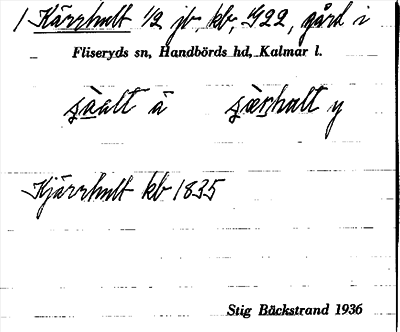 1 Kärrhult 1/2 jb, kb, G22, gård i
Fliseryds sn, Handbörds hd, Kalmar l.
ä y
Kjärrhult kb 1835
Stig Bäckstrand 1936